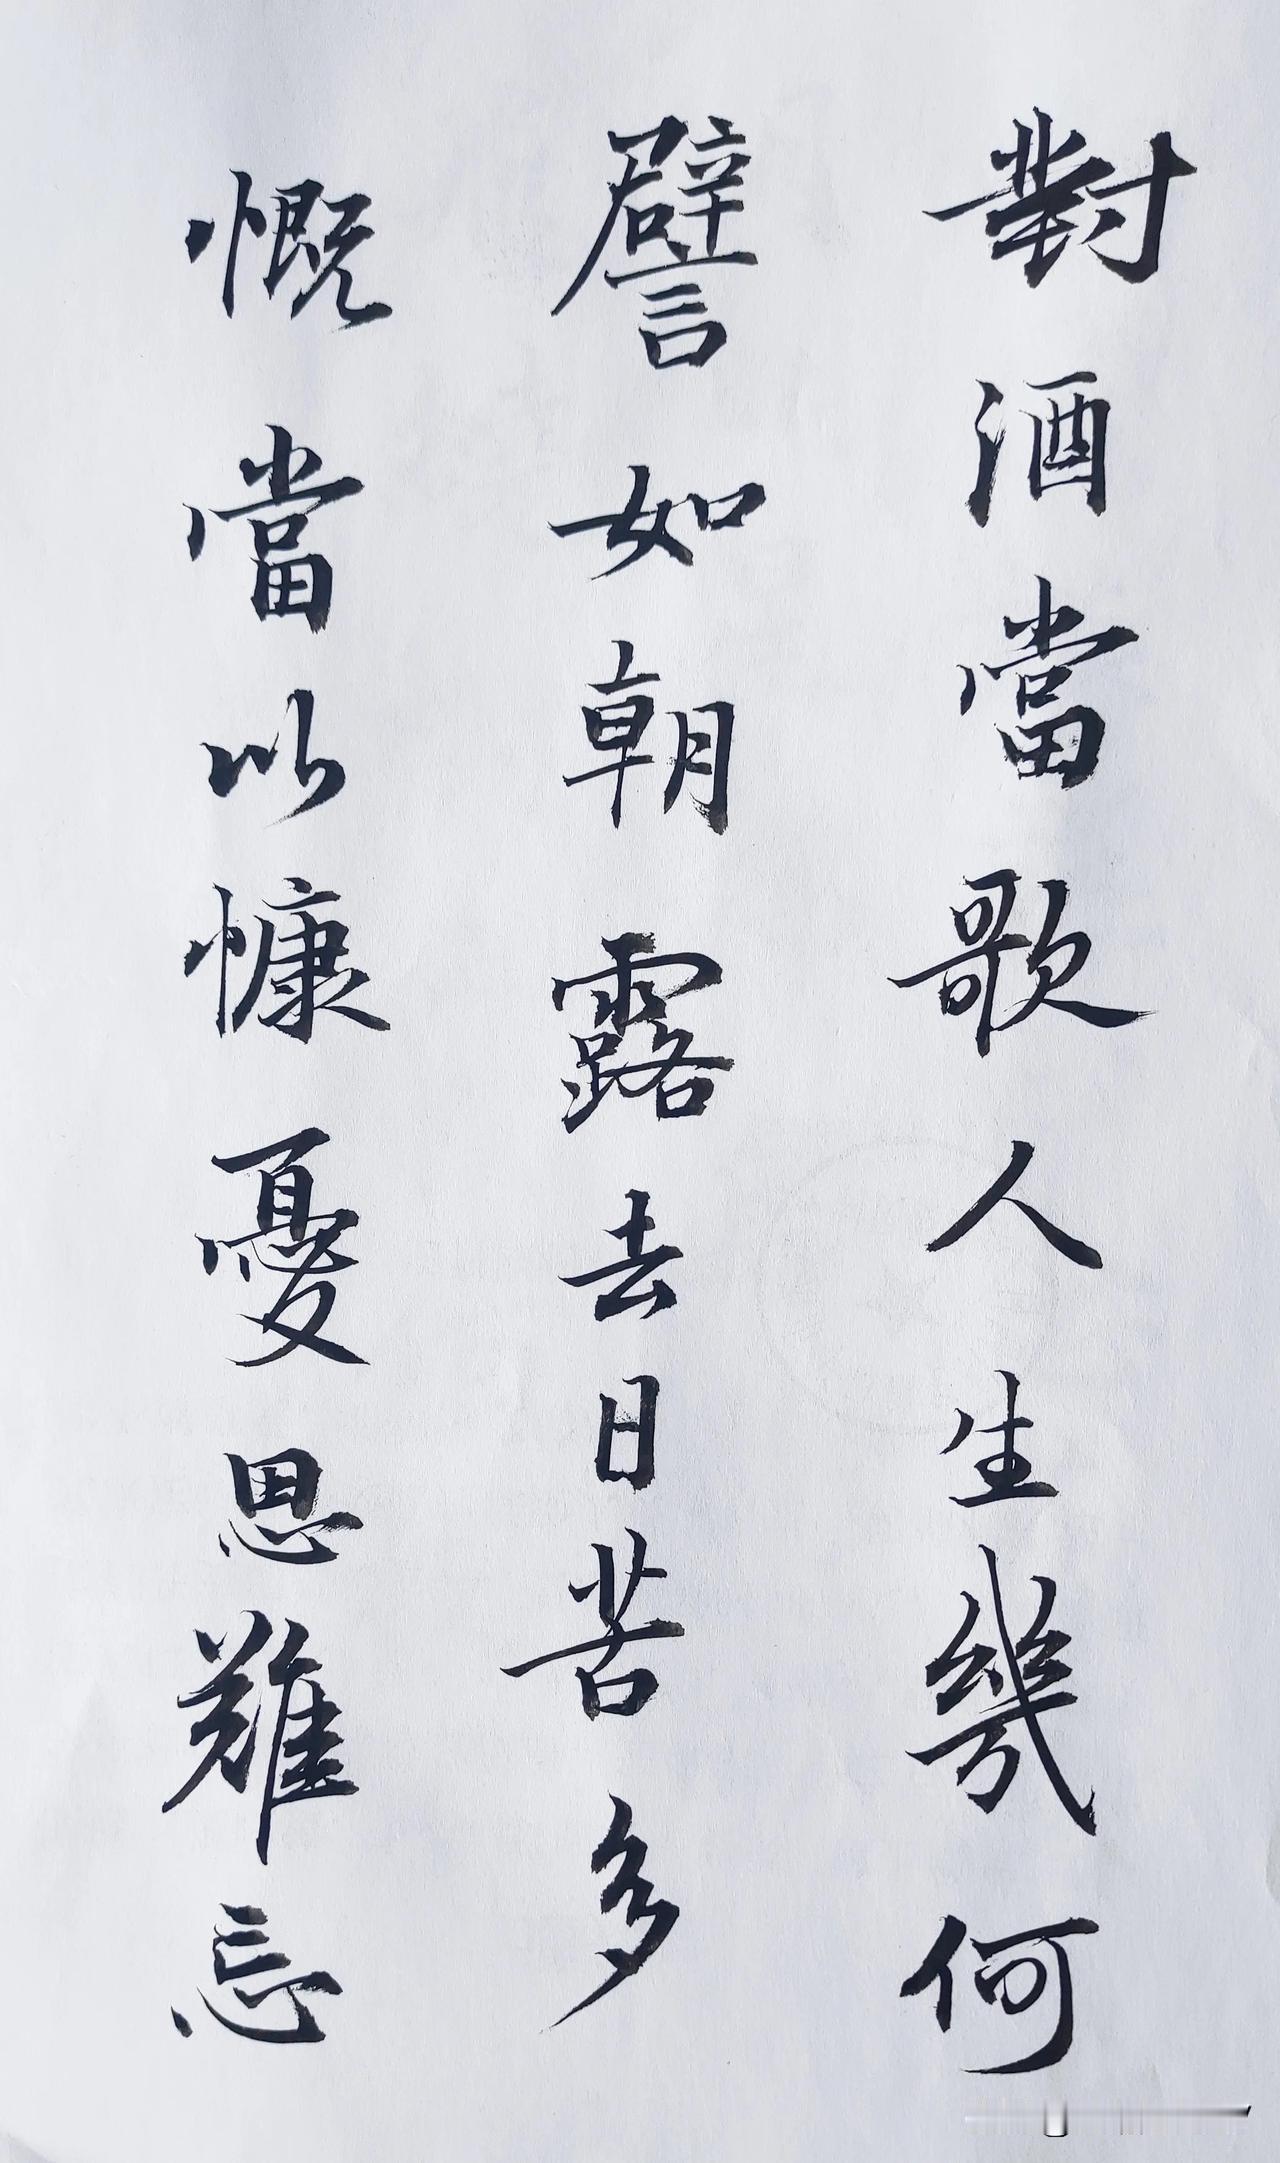 對酒當歌人生幾何
譬如朝露去日苦多
慨當以慷憂思難忘